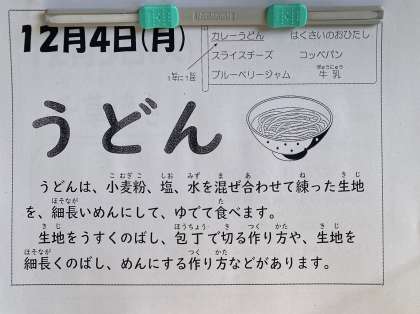 12月4日(月)
カレーうどん はくさいのおひたし
スライスチーズ コッペパン
ブルーベリージャム 牛乳
うどん
うどんは、小麦粉、塩、水を混ぜ合わせて練った生地
を、細長いめんにして、ゆでて食べます。
生地をうすくのばし、包丁で切る作り方や、生地を
細長くのばし、めんにする作り方などがあります。